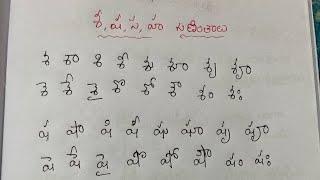 శ, ష, స, హ గుణింతాలు
శ శా శి శీ శు శూ శృ శౄ
శె శే శై శొ శో శౌ శం శః
ష షా షి షీ షు షూ షృ షౄ
షె షే షై షొ షో షౌ షం షః